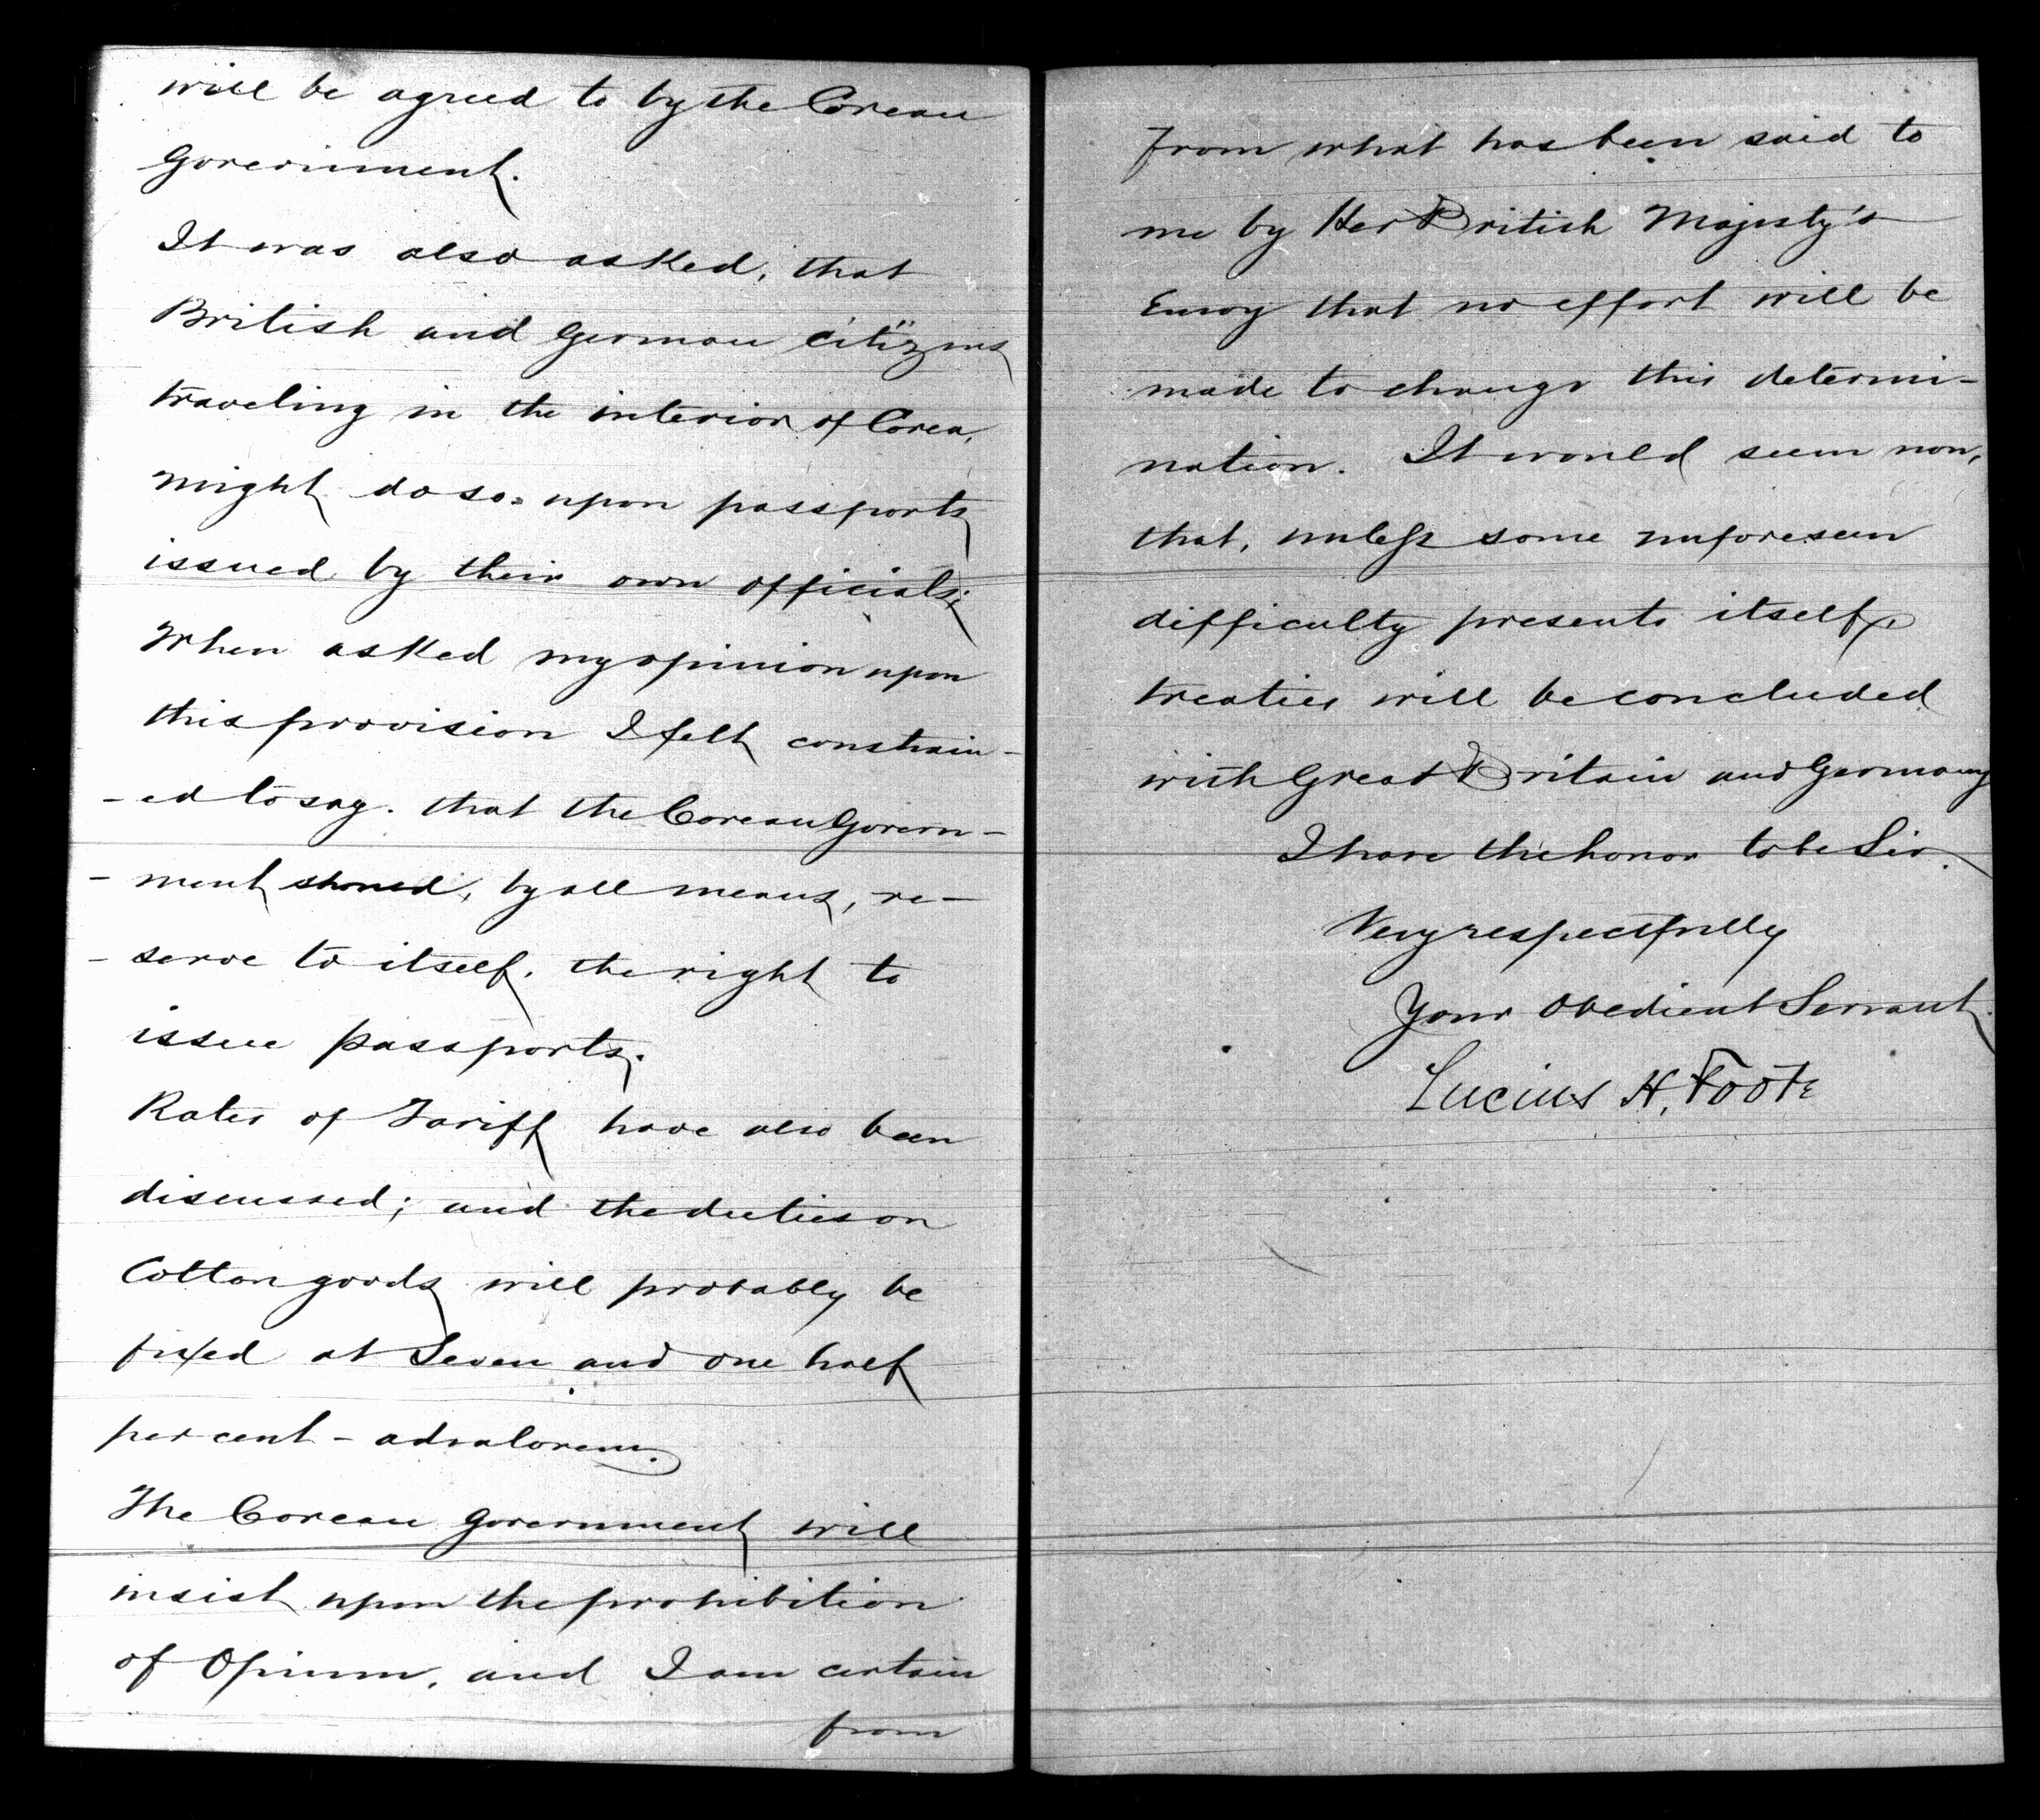 will be agreed to by the Corean
Government.
It was also asked, that
British and German citizens
traveling in the interior of Corea,
might do so upon passports
issued by their own officials;
When asked my opinion upon
this provision I felt constrain-
-ed to say. that the Corean Govern-
-ment should, by all means, re-
-serve to itself, the right to
issue passports.
Rates of Tariff have also been
discussed; and the duties on
Cotton goods will probably be
fixed at Seven and one half
per cent - advalorem.
The Corean Government will
insist upon the prohibition
of Opium, and I am certain
from
From what has been said to
me by Her British Majesty's
Envoy that no effort will be
made to change this determi-
nation. It would seem now,
that, unless some unforeseen
difficulty presents itself,
treaties will be concluded
with Great Britain and Germany
I have the honor to be Sir.
Very respectfully
Your Obedient Servant.
Lucius H. Foote